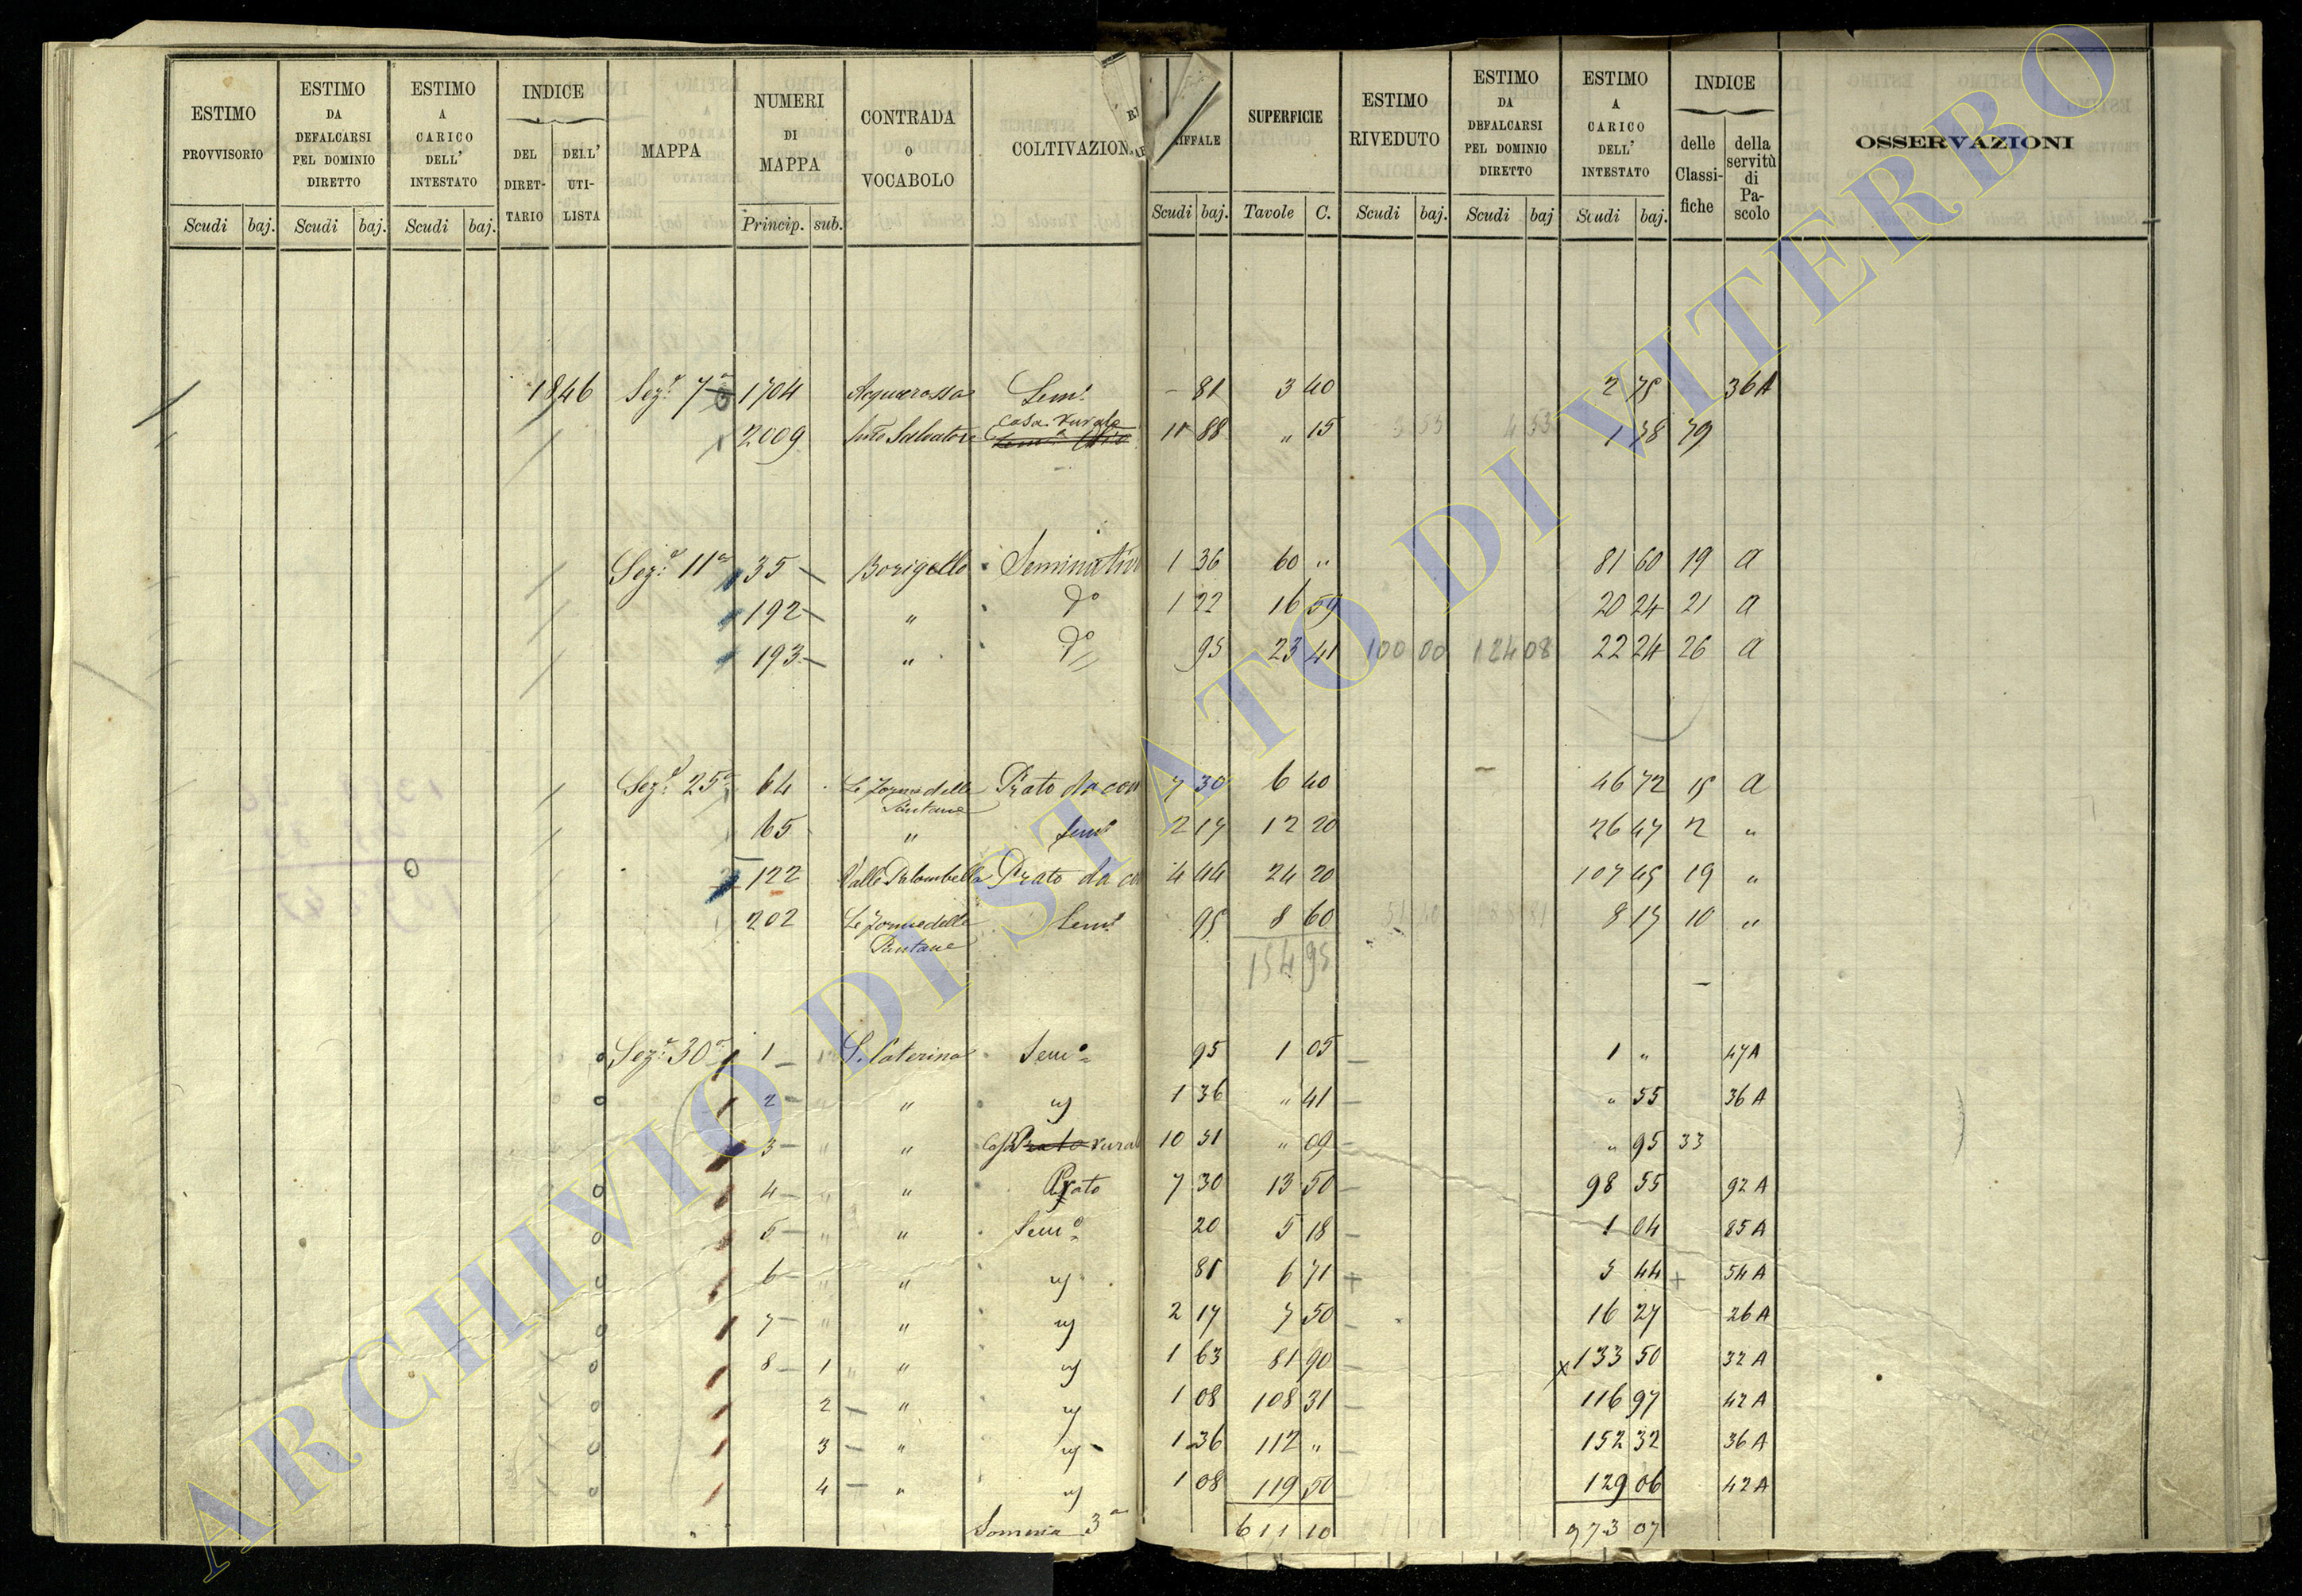 ESTIMO PROVVISORIO
Scudi baj.
ESTIMO DA DEFALCARSI PEL DOMINIO DIRETTO
Scudi baj.
ESTIMO A CARICO DELL' INTESTATO
Scudi baj.
INDICE
DEL DIRET-TARIO
DELL' UTI-LISTA
MAPPA
NUMERI DI MAPPA
Princip. sub.
CONTRADA O VOCABOLO
COLTIVAZION
IFFALE
Scudi baj.
SUPERFICIE
Tavole C.
ESTIMO RIVEDUTO
Scudi baj.
ESTIMO DA DEFALCARSI PEL DOMINIO DIRETTO
Scudi baj
ESTIMO A CARICO DELL' INTESTATO
Scudi baj.
INDICE
delle Classi-fiche
della servitù di Pa-scolo
OSSERVAZIONI
1846 Sez.e 7a 1704 Acquarossa Sem.o - 81 3 40 2 75 36A
2009 Salvatore Casa rurale 11 88 " 15 1 78 79
Sez.e 11a 35 Borigello Seminativo 1 36 60 " 81 60 19 a
192 " do 1 22 16 59 20 24 21 a
193 " do 95 23 41 100 00 124 08 22 24 26 a
Sez.e 25a 64 Le Forme delle Pantane Prato da con 7 30 6 40 46 72 15 a
65 " Sem.o 2 17 12 20 26 47 2 "
122 Valle Palombella Prato da co 4 44 24 20 107 45 19 "
202 Le Forme delle Pantane Sem.o 95 8 60 8 17 10 "
154 95
Sez.e 30a 1 S. Caterina Sem.o 95 1 05 1 " 47A
2 " " 1 36 " 41 " 55 36A
3 " " Casa Prato rural 10 51 " 09 " 95 33
4 " " Prato 7 30 13 50 98 55 92A
5 " " Sem.o 20 5 18 1 04 85A
6 " " 81 6 71 5 44 54A
7 " " 2 17 7 50 16 27 26A
8 1 " 1 63 81 90 133 50 32A
2 " 1 08 108 31 116 97 42A
3 " 1 36 112 " 152 32 36A
4 " 1 08 119 50 129 06 42A
Somma 3a 611 10 973 07
ARCHIVIO DI STATO DI VITERBO